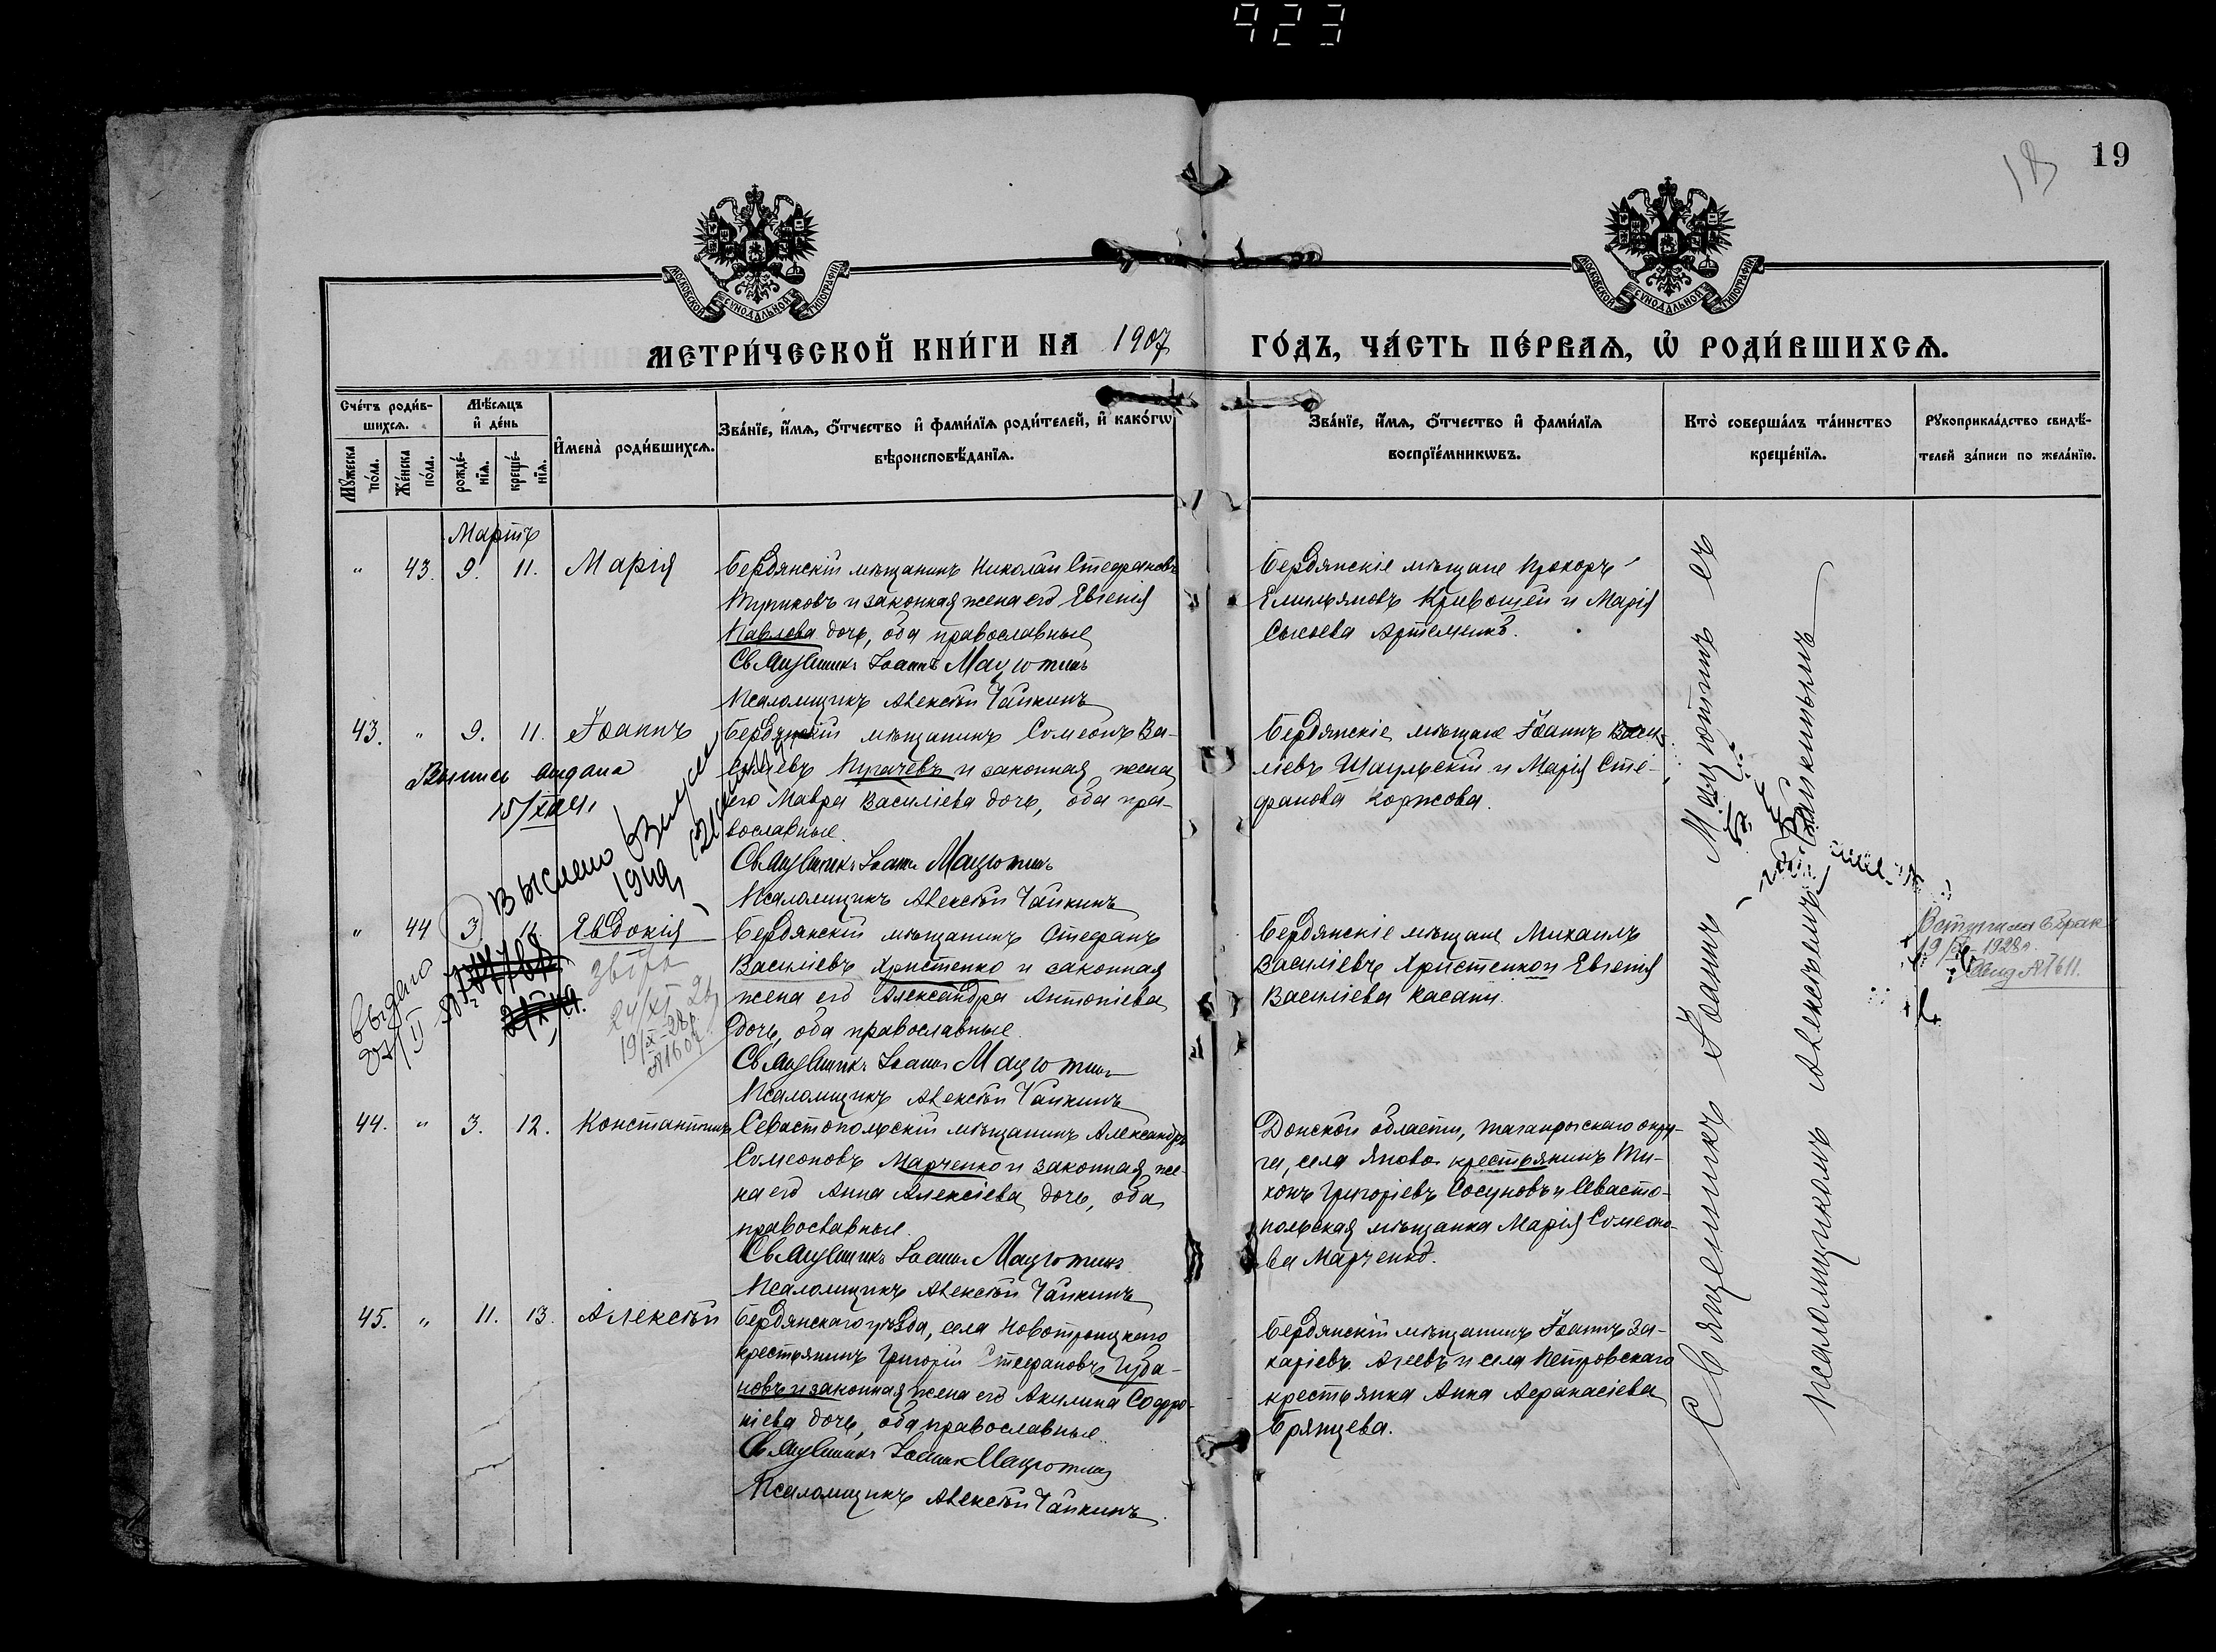 423
19
МОСКОВСКОЙ СѴНОДАЛЬНОЙ ТИПОГРАФІИ
МОСКОВСКОЙ СѴНОДАЛЬНОЙ ТИПОГРАФІИ
МЕТРИ́ЧЕСКОЙ КНИ́ГИ НА 1907 ГО́ДЪ, ЧА́СТЬ ПЕ́РВАѦ, Ѽ РОДИ́ВШИХСѦ.
Сче́тъ роди́в-
шихсѧ.
Мѣ́сѧцъ
и҆ де́нь
Мꙋ́жеска по́ла.
Же́нска по́ла.
рожде́-
нїѧ.
креще́-
нїѧ.
И҆мена̀ роди́вшихсѧ.
Зва́нїе, и҆́мѧ, ѻ҆́тчество и҆ фами́лїѧ роди́телей, и҆ како́гѡ
вѣроисповѣ́данїѧ.
Зва́нїе, и҆́мѧ, ѻ҆́тчество и҆ фами́лїѧ
воспрїе́мникѡвъ.
Кто̀ соверша́лъ та́инство
креще́нїѧ.
Рꙋкоприкла́дство свидѣ́-
телей за́писи по жела́нїю.
Мартъ
" 43. 9. 11. Марія
Бердянскій мѣщанинъ Николай Стефановъ
Тупиковъ и законная жена его Евгенія
Павлова дочь, оба православные
Священникъ Іоаннъ Мацютинъ
Псаломщикъ Алексѣй Чайкинъ
Бердянскіе мѣщане Прохоръ
Емильяновъ Кривошей и Марія
Сысоева Артеменко.
43. " 9. 11. Іоаннъ
Бердянскій мѣщанинъ Симеонъ Ва-
силіевъ Пугачевъ и законная жена
его Мавра Василіева дочь, оба пра-
вославные.
Священникъ Іоаннъ Мацютинъ
Псаломщикъ Алексѣй Чайкинъ
Бердянскіе мѣщане Іоаннъ Васи-
ліевъ Шаульскій и Марія Сте-
фанова Коржова.
Выпись выдана
" 44 3 11. Евдокія
Бердянскій мѣщанинъ Стефанъ
Василіевъ Христенко и законная
жена его Александра Антоніева
дочь, оба православные.
Священникъ Іоаннъ Мацютинъ
Псаломщикъ Алексѣй Чайкинъ
Бердянскіе мѣщане Михаилъ
Василіевъ Христенко и Евгенія
Василіева
выдано
24/XI
19/X-28
Вступила в брак
19/X 1928г.
44. " 3. 12. Константинъ
Севастопольскій мѣщанинъ Александръ
Симеоновъ Марченко и законная же-
на его Анна Алексіева дочь, оба
православные.
Священникъ Іоаннъ Мацютинъ
Псаломщикъ Алексѣй Чайкинъ
Донской области, таганрогскаго окру-
га, села крестьянинъ Ти-
хонъ Григоріевъ Сосуновъ и Севасто-
польская мѣщанка Марія Симеоно-
ва Марченко.
45. " 11. 13. Алексѣй
Бердянскаго уѣзда, села Новотроицкаго
крестьянинъ Григорій Стефановъ Губа-
новъ и законная жена его Акилина Софро-
ніева дочь, оба православные.
Священникъ Іоаннъ Мацютинъ
Псаломщикъ Алексѣй Чайкинъ
Бердянскій мѣщанинъ Іоаннъ За-
харіевъ Агеевъ и села Петровскаго
крестьянка Анна Афанасіева
Брянцева.
Священникъ Іоаннъ Мацютинъ съ
псаломщикомъ Алексѣемъ Чайкинымъ